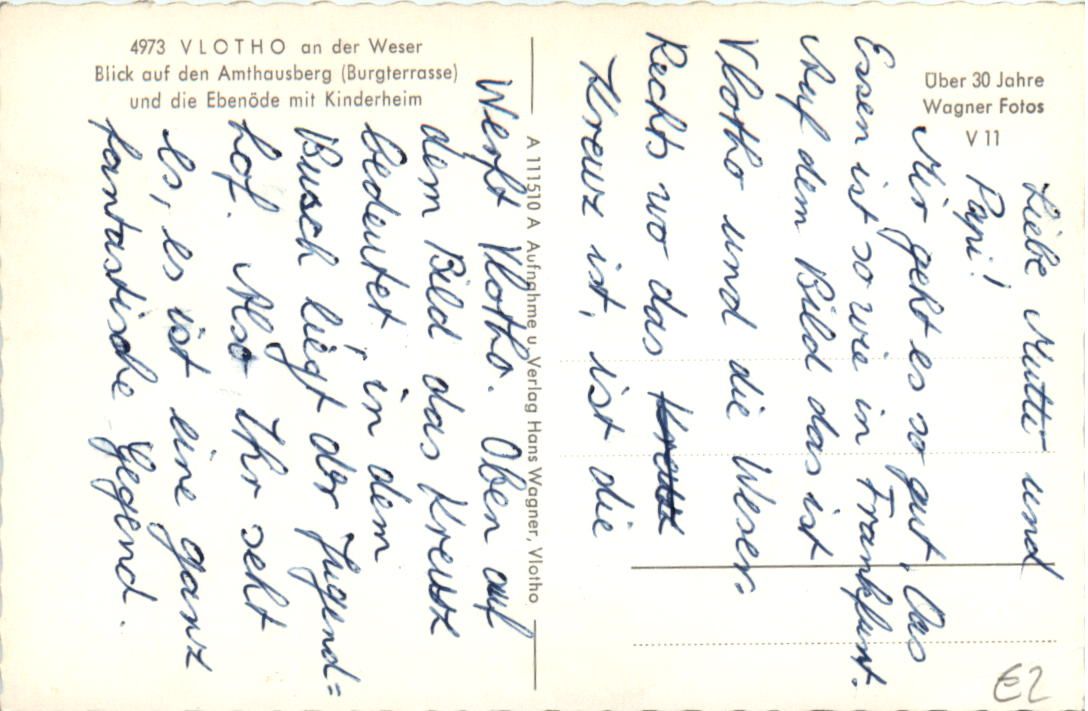 4973 VLOTHO an der Weser
Blick auf den Amthausberg (Burgterrasse)
und die Ebenöde mit Kinderheim
Über 30 Jahre
Wagner Fotos
V 11
A 111510 A Aufnahme u. Verlag Hans Wagner, Vlotho
Liebe Mutti und
Papi!
Mir geht es so gut. Das
Essen ist so wie in Frankfurt.
Auf dem Bild das ist
Vlotho und die Weser.
Rechts wo das Kreuz
Kreuz ist, ist die
Werft Vlotho. Oben auf
dem Bild das Kreuz
bedeutet, in dem
Busch liegt der Jugend=
hof. Also Ihr seht
es, es ist eine ganz
fantastische Gegend.
€2